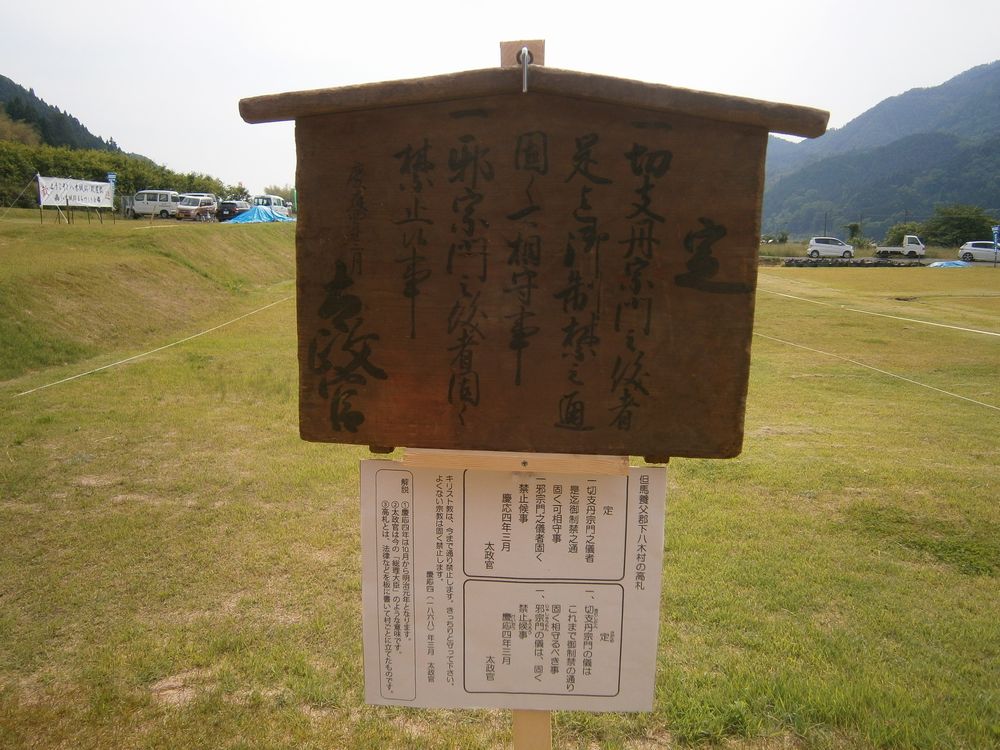 定
一切支丹宗門之儀者
是迄御制禁之通
固く可相守事
一邪宗門之儀者固く
禁止候事
慶應四年三月
太政官
但馬養父郡下八木村の高札
定
一切支丹宗門之儀者
是迄御制禁之通
固く可相守事
一邪宗門之儀者固く
禁止候事
慶応四年三月
太政官
定
一、切支丹宗門の儀は
これまで御制禁の通り
固く相守るべき事
一、邪宗門の儀は、固く
禁止候事
慶応四年三月
太政官
キリスト教は、今まで通り禁止します。きっちりと守って下さい。
よくない宗教は固く禁止します。
慶応四（一八六八）年三月 太政官
解説 ①慶応四年は10月から明治元年となります。
②太政官は今の「総理大臣」のような意味です。
③高札とは、法律などを板に書いて村ごとに立てたものです。